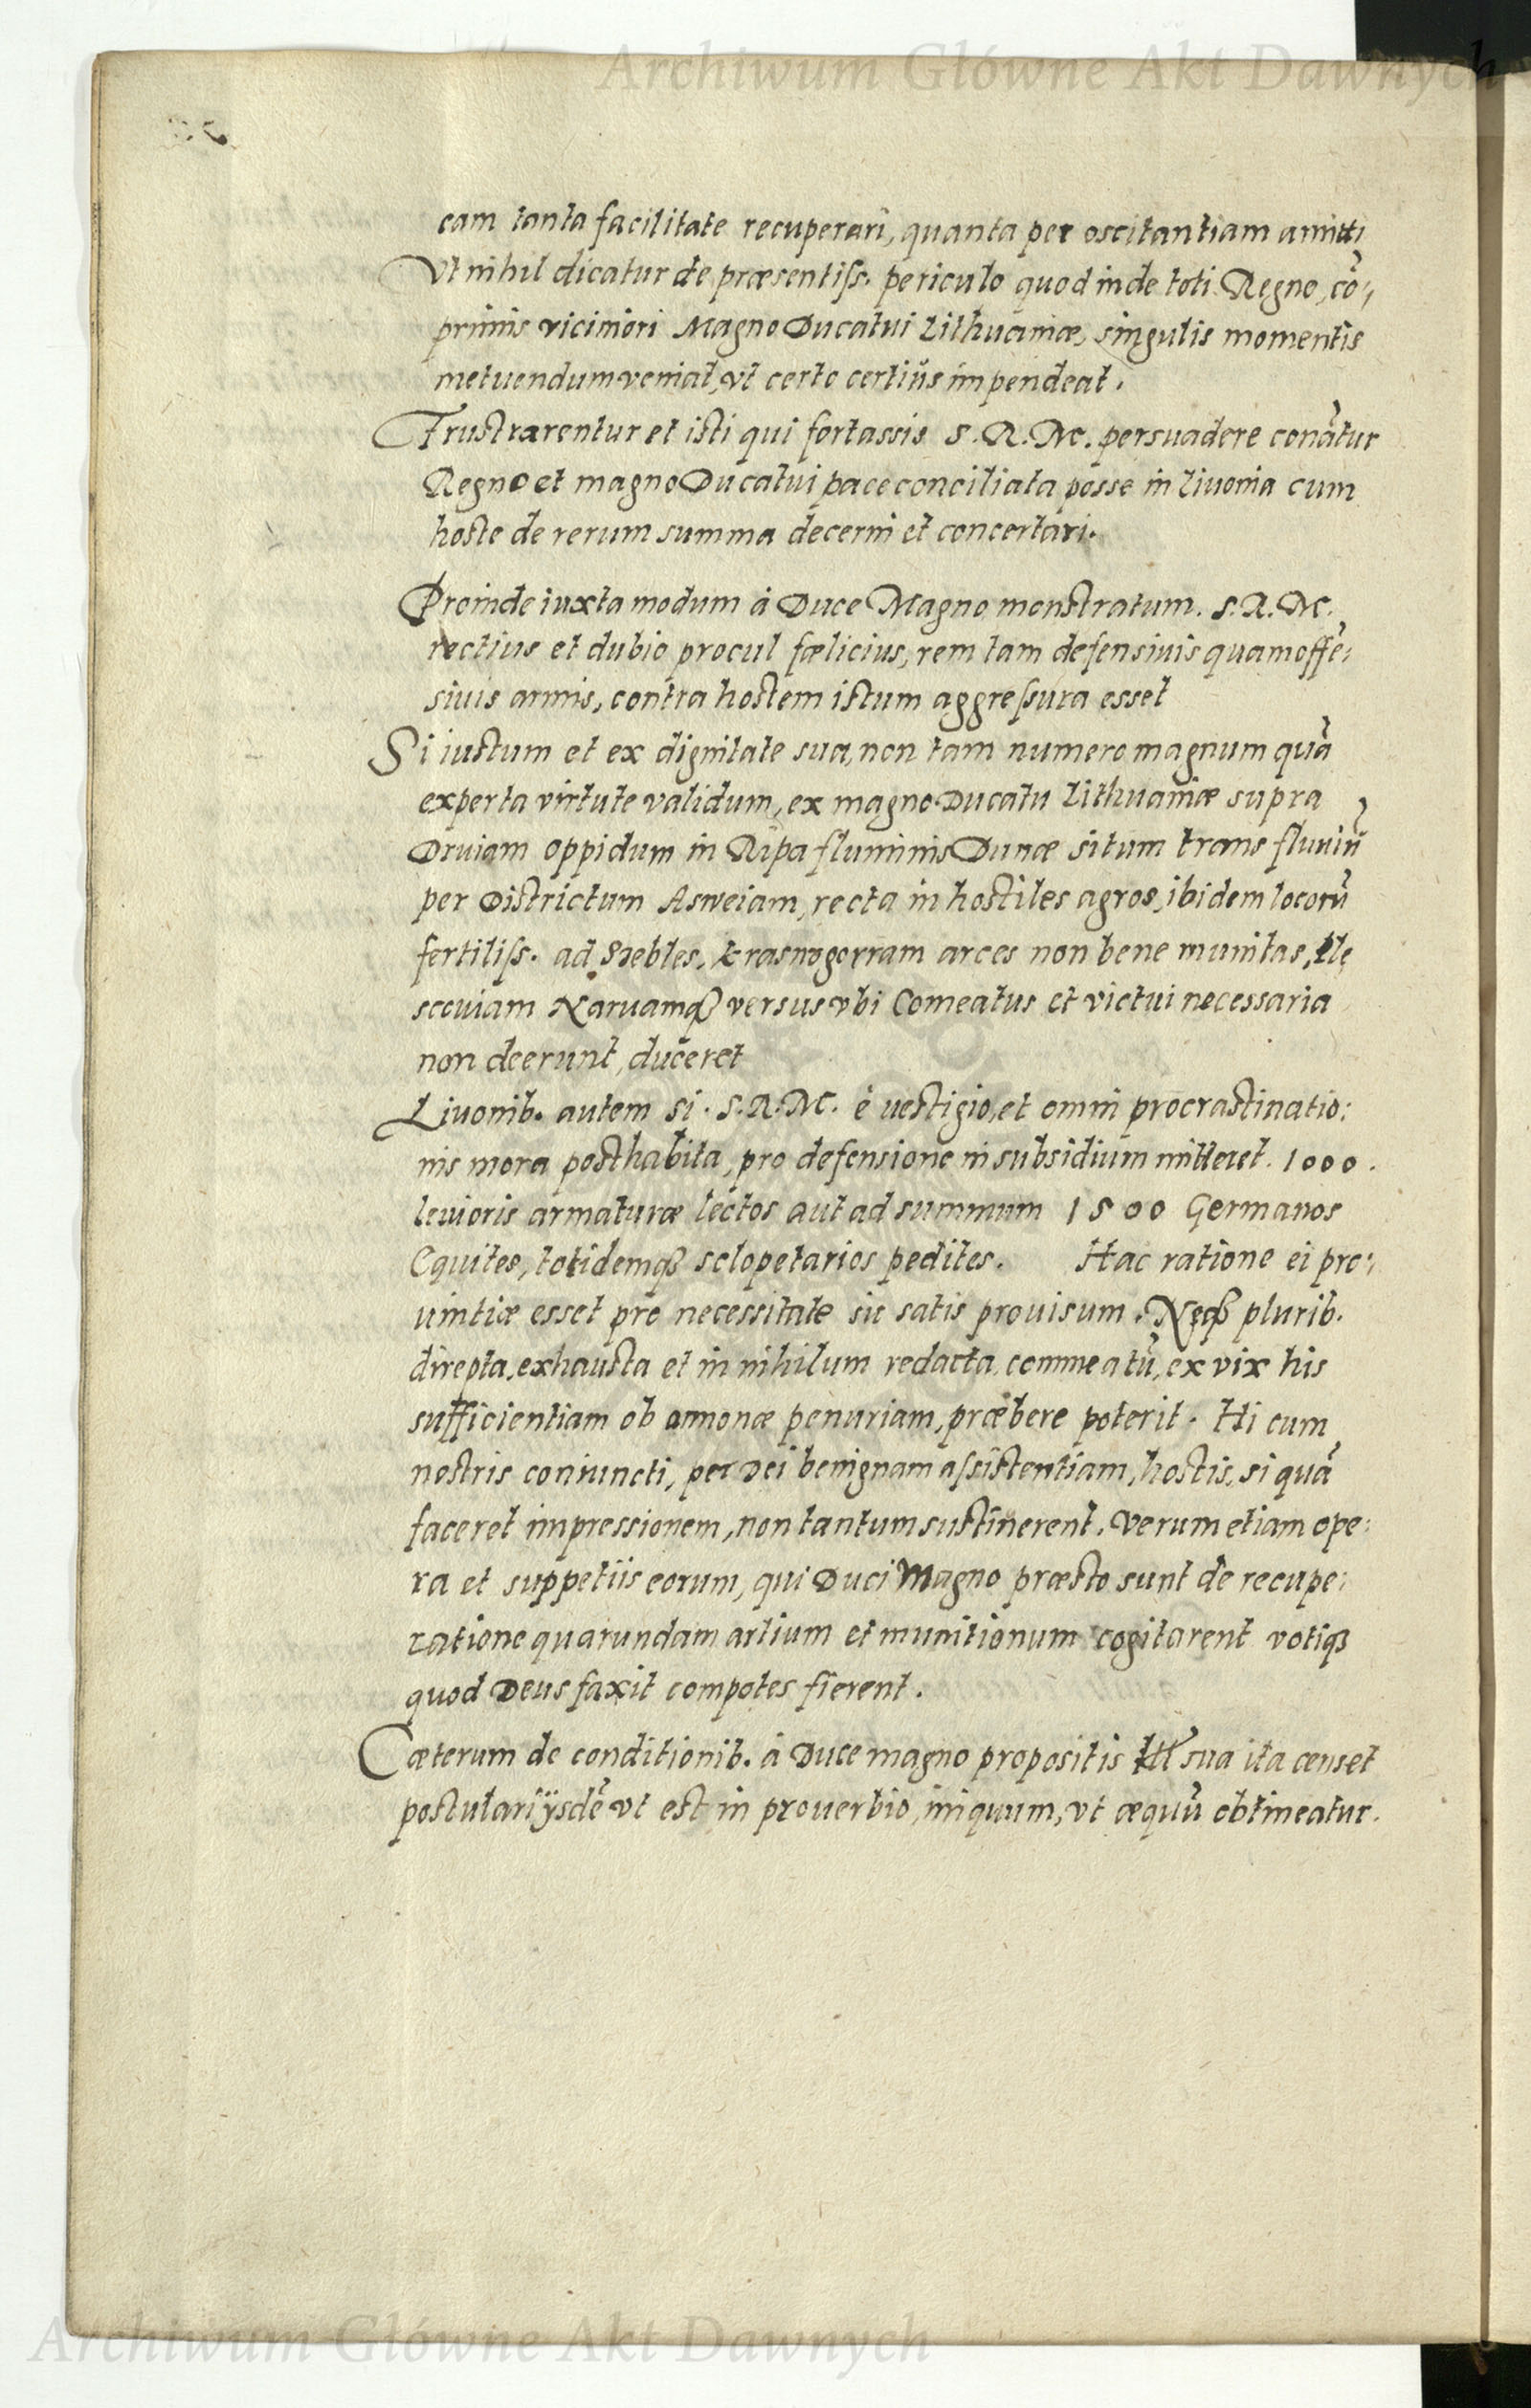 Archiwum Główne Akt Dawnych
eam tanta facilitate recuperari, quanta per oscitantiam amitti
Vt nihil dicatur de præsentiss. periculo quod inde toti Regno, cō:
primis vicimori Magno Ducatui Lithuaniæ, singulis momentis
metuendum veniat, vt certo certius impendeat.
Frustrarentur et isti qui fortassis S. R. M. persuadere conātur
Regno et magno Ducatui pace conciliata posse in Liuonia cum
hoste de rerum summa decerni et concertari.
Proinde iuxta modum à Duce Magno monstratum. S. R. M.
rectius et dubio procul fœlicius, rem tam defensiuis quam offē:
siuis armis, contra hostem istum aggressura esset
Si iustum et ex dignitate sua, non tam numero magnum quā
experta virtute validum, ex magno Ducatu Lithuaniæ supra
Druiam oppidum in Ripa fluminis Dunæ situm trans fluuiū
per Districtum Asweiam, recta in hostiles agros, ibidem locorū
fertiliss. ad Siebles, Krasnogorram arces non bene munitas, Ple
scouiam Naruamq3 versus vbi Comeatus et victui necessaria
non deerunt, duceret
Liuonib. autem si. S. R. M. è uestigio, et omni procrastinatio:
nis mora posthabita, pro defensione in subsidium mitteret. 1000.
leuioris armaturæ lectos aut ad summum 1500 Germanos
Equites, totidemq3 sclopetarios pedites. Hac ratione ei pro:
uintiæ esset pro necessitate sic satis prouisum. Neq3 plurib.
direpta, exhausta et in nihilum redacta, commeatū, ex vix his
sufficientiam ob annonæ penuriam, præbere poterit. Hi cum
nostris coniuncti, per Dei benignam assistentiam, hostis, si quā
faceret impressionem, non tantum sustinerent. Verum etiam ope:
ra et suppetiis eorum, qui Duci Magno præsto sunt de recupe:
ratione quarundam artium et munitionum cogitarent votiq3
quod Deus faxit compotes fierent.
Cæterum de conditionib. à Duce magno propositis sua ita censet
postulari ijsdē vt est in prouerbio, iniquum, vt æquū obtineatur.
Archiwum Główne Akt Dawnych